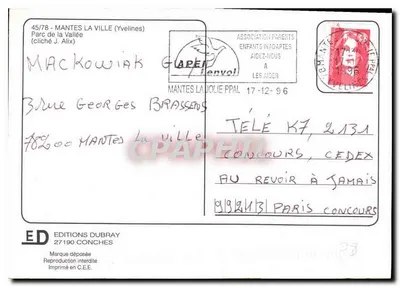 45/78 - MANTES LA VILLE (Yvelines)
Parc de la Vallée
(cliché J. Alix)
MACKOWIAK G
3 rue GEORGES BRASSENS
78200 MANTES La Ville
ASSOCIATION PARENTS
ENFANTS INADAPTES
AIDEZ-NOUS
A
LES AIDER
APEI
l'envol
MANTES LA JOLIE PPAL 17-12-96
TÉLÉ K7, 2131
CONCOURS, CEDEX
AU REVOIR À JAMAIS
99213 PARIS CONCOURS
CPARAMA
ED
EDITIONS DUBRAY
27190 CONCHES
Marque déposée
Reproduction interdite
Imprimé en C.E.E.